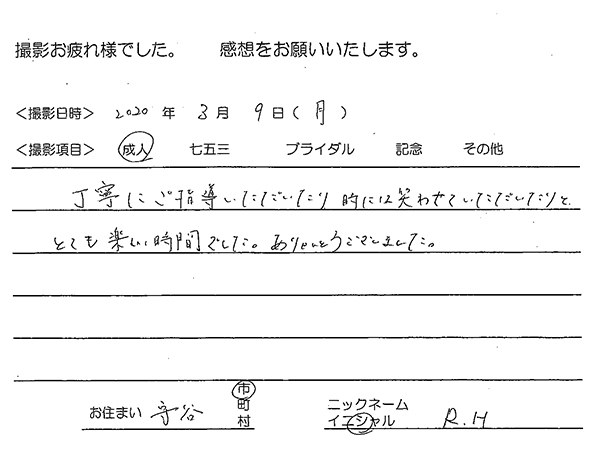 撮影お疲れ様でした。 感想をお願いいたします。
<撮影日時> 2020 年 3月 9日(月)
<撮影項目> 成人 七五三 ブライダル 記念 その他
丁寧にご指導いただいたり 時には笑わせていただいたりと、
とても楽しい時間でした。ありがとうございました。
お住まい 守谷 市 町 村
ニックネーム
イニシャル R.H